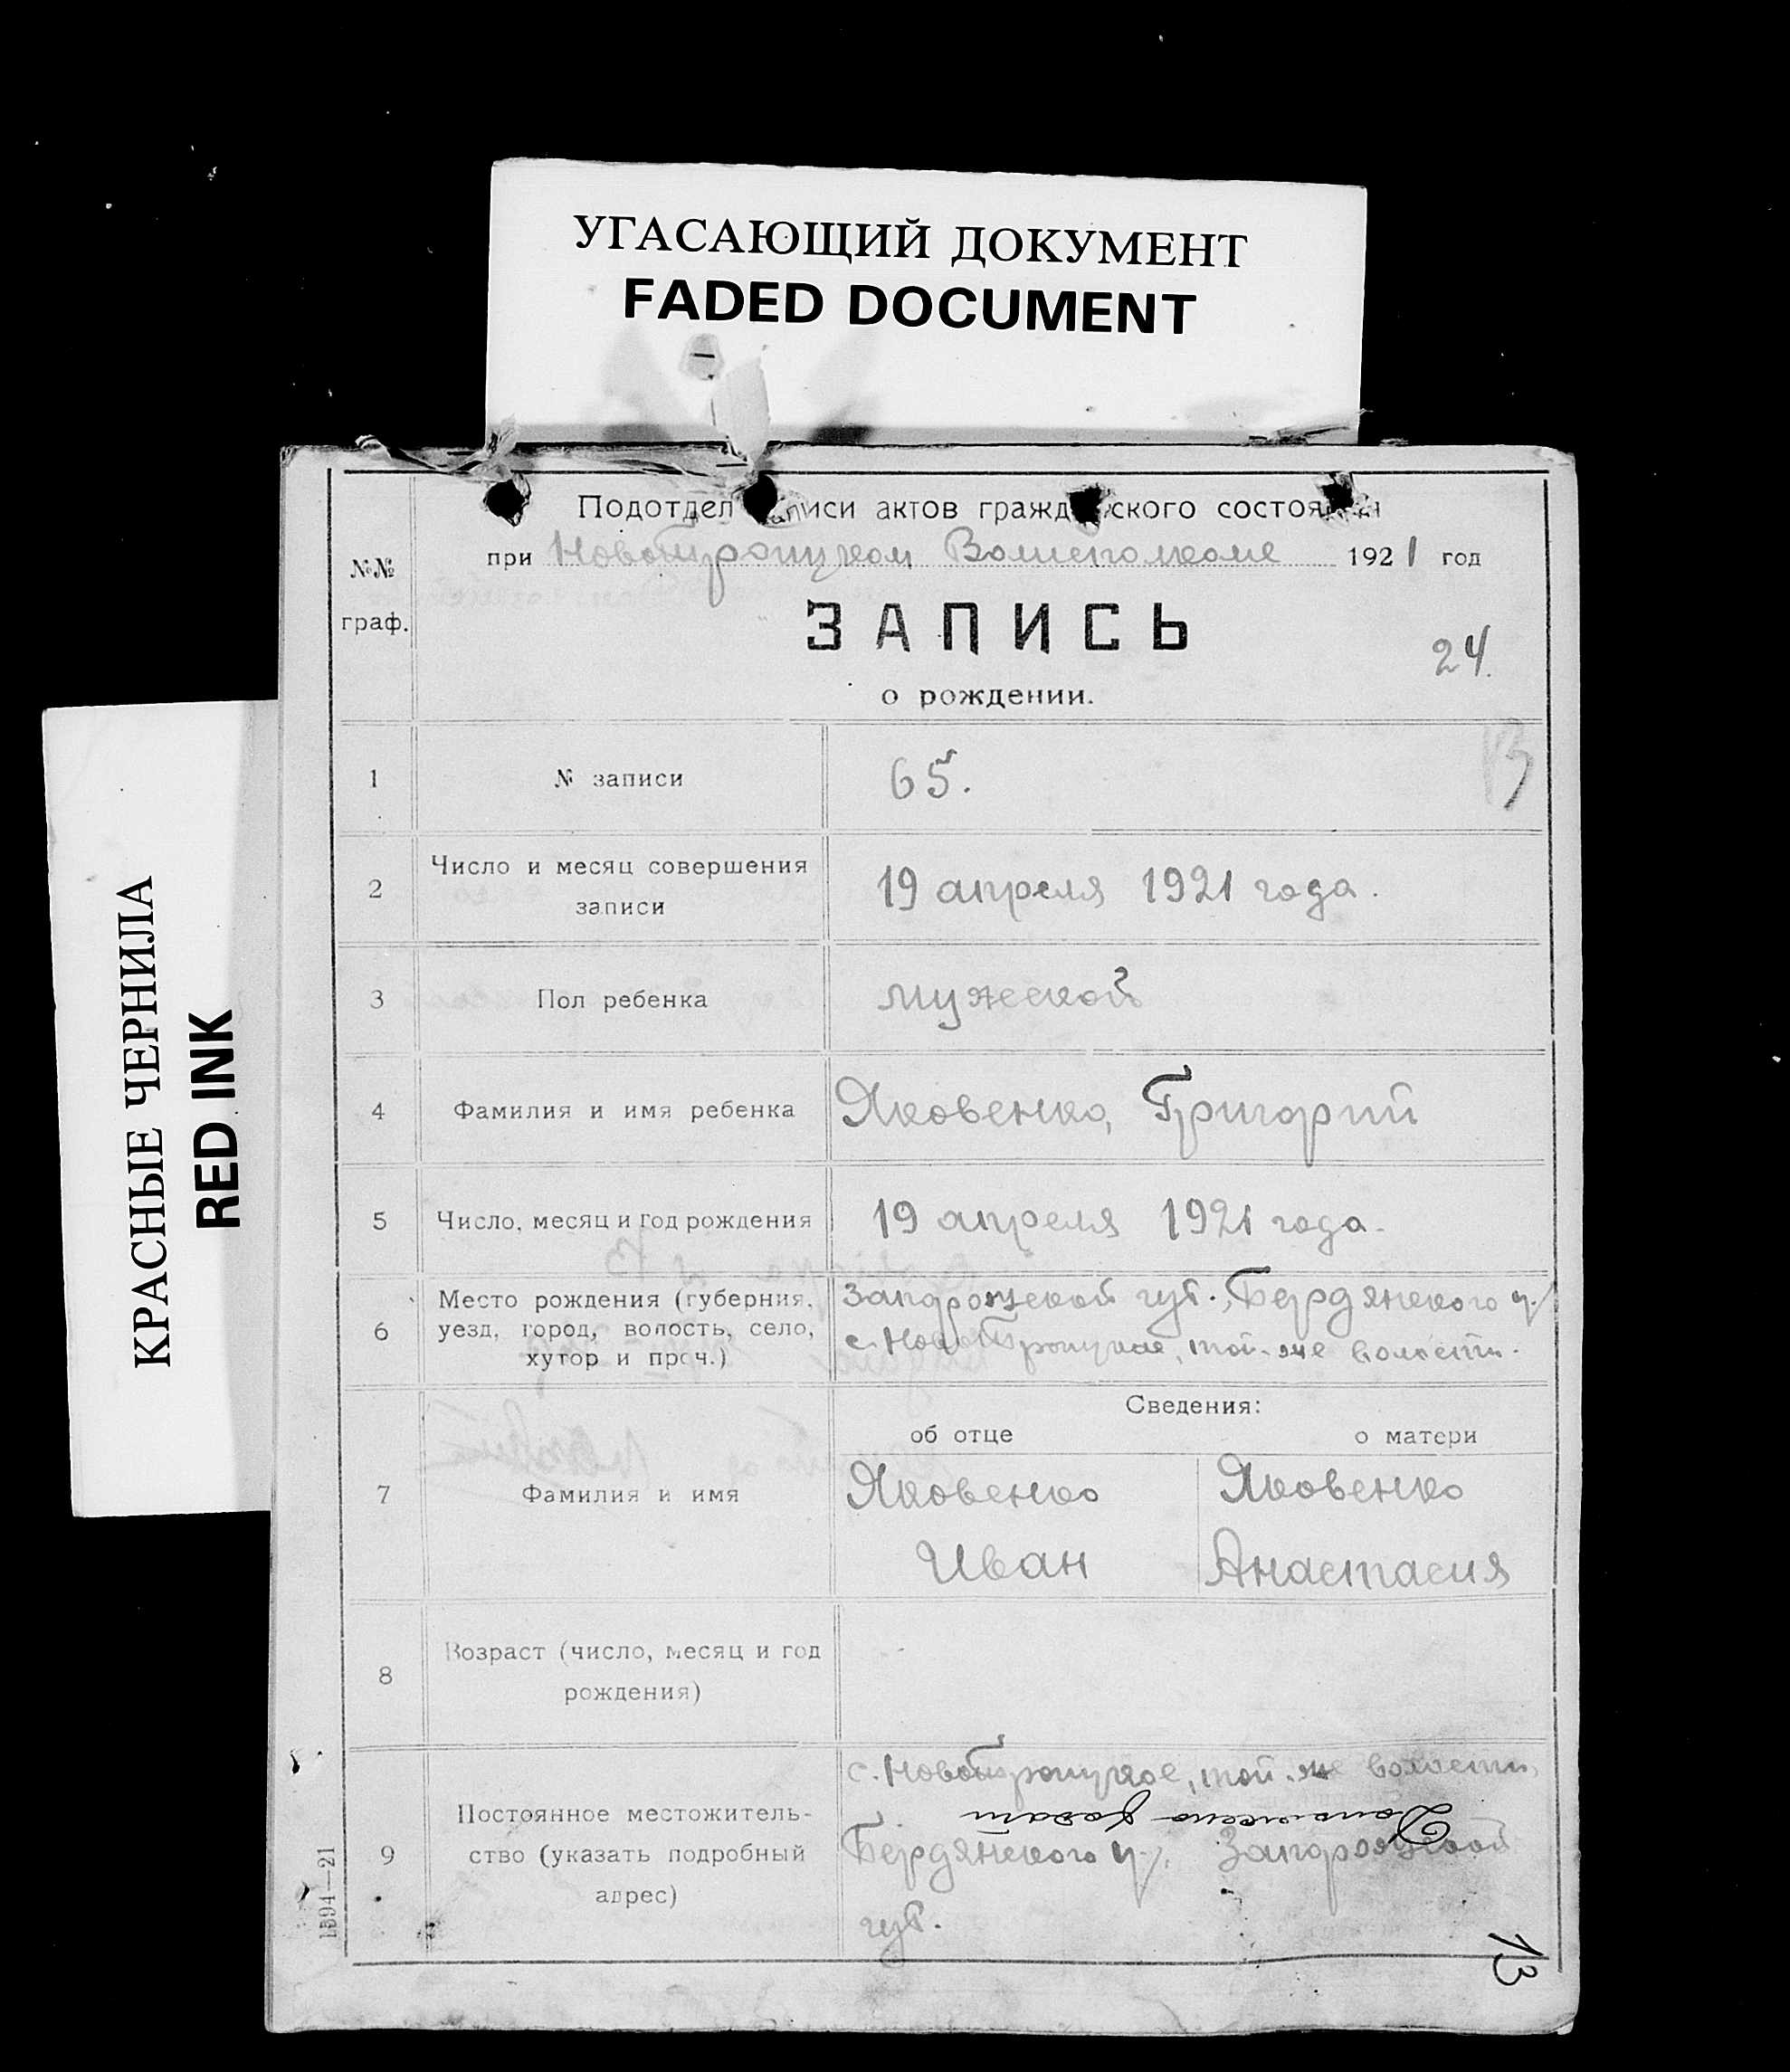 УГАСАЮЩИЙ ДОКУМЕНТ
FADED DOCUMENT
КРАСНЫЕ ЧЕРНИЛА
RED INK
Подотдел записи актов гражданского состояния
при Новотроицком Волисполкоме 1921 год
№№
граф.
ЗАПИСЬ
24.
о рождении.
1 № записи 65.
13
2 Число и месяц совершения
записи
19 апреля 1921 года.
3 Пол ребенка мужской
4 Фамилия и имя ребенка Яковенко, Григорий
5 Число, месяц и год рождения 19 апреля 1921 года.
6 Место рождения (губерния,
уезд, город, волость, село,
хутор и проч.)
Запорожской губ., Бердянского у.
с. Новотроицкое, той-же волости.
Сведения:
об отце о матери
7 Фамилия и имя
Яковенко Яковенко
Иван Анастасия
8 Возраст (число, месяц и год
рождения)
9 Постоянное местожитель-
ство (указать подробный
адрес)
с. Новотроицкое, той-же волости,
Бердянского у. Запорожской
губ.
1394—21
13